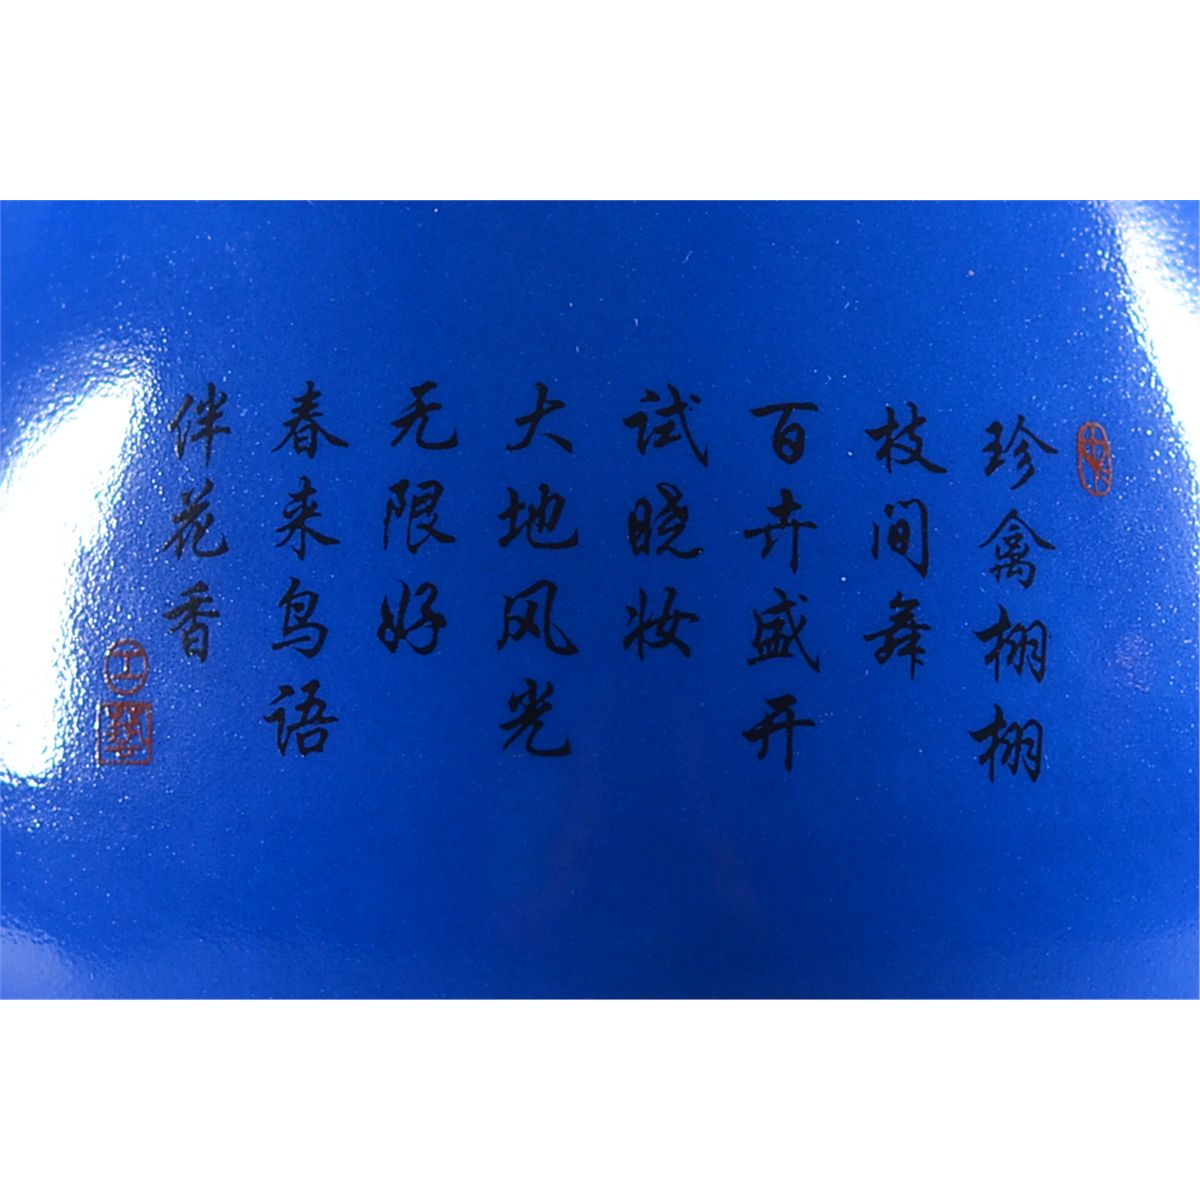 珍禽栩栩
枝间舞
百卉盛开
试晓妆
大地风光
无限好
春来鸟语
伴花香